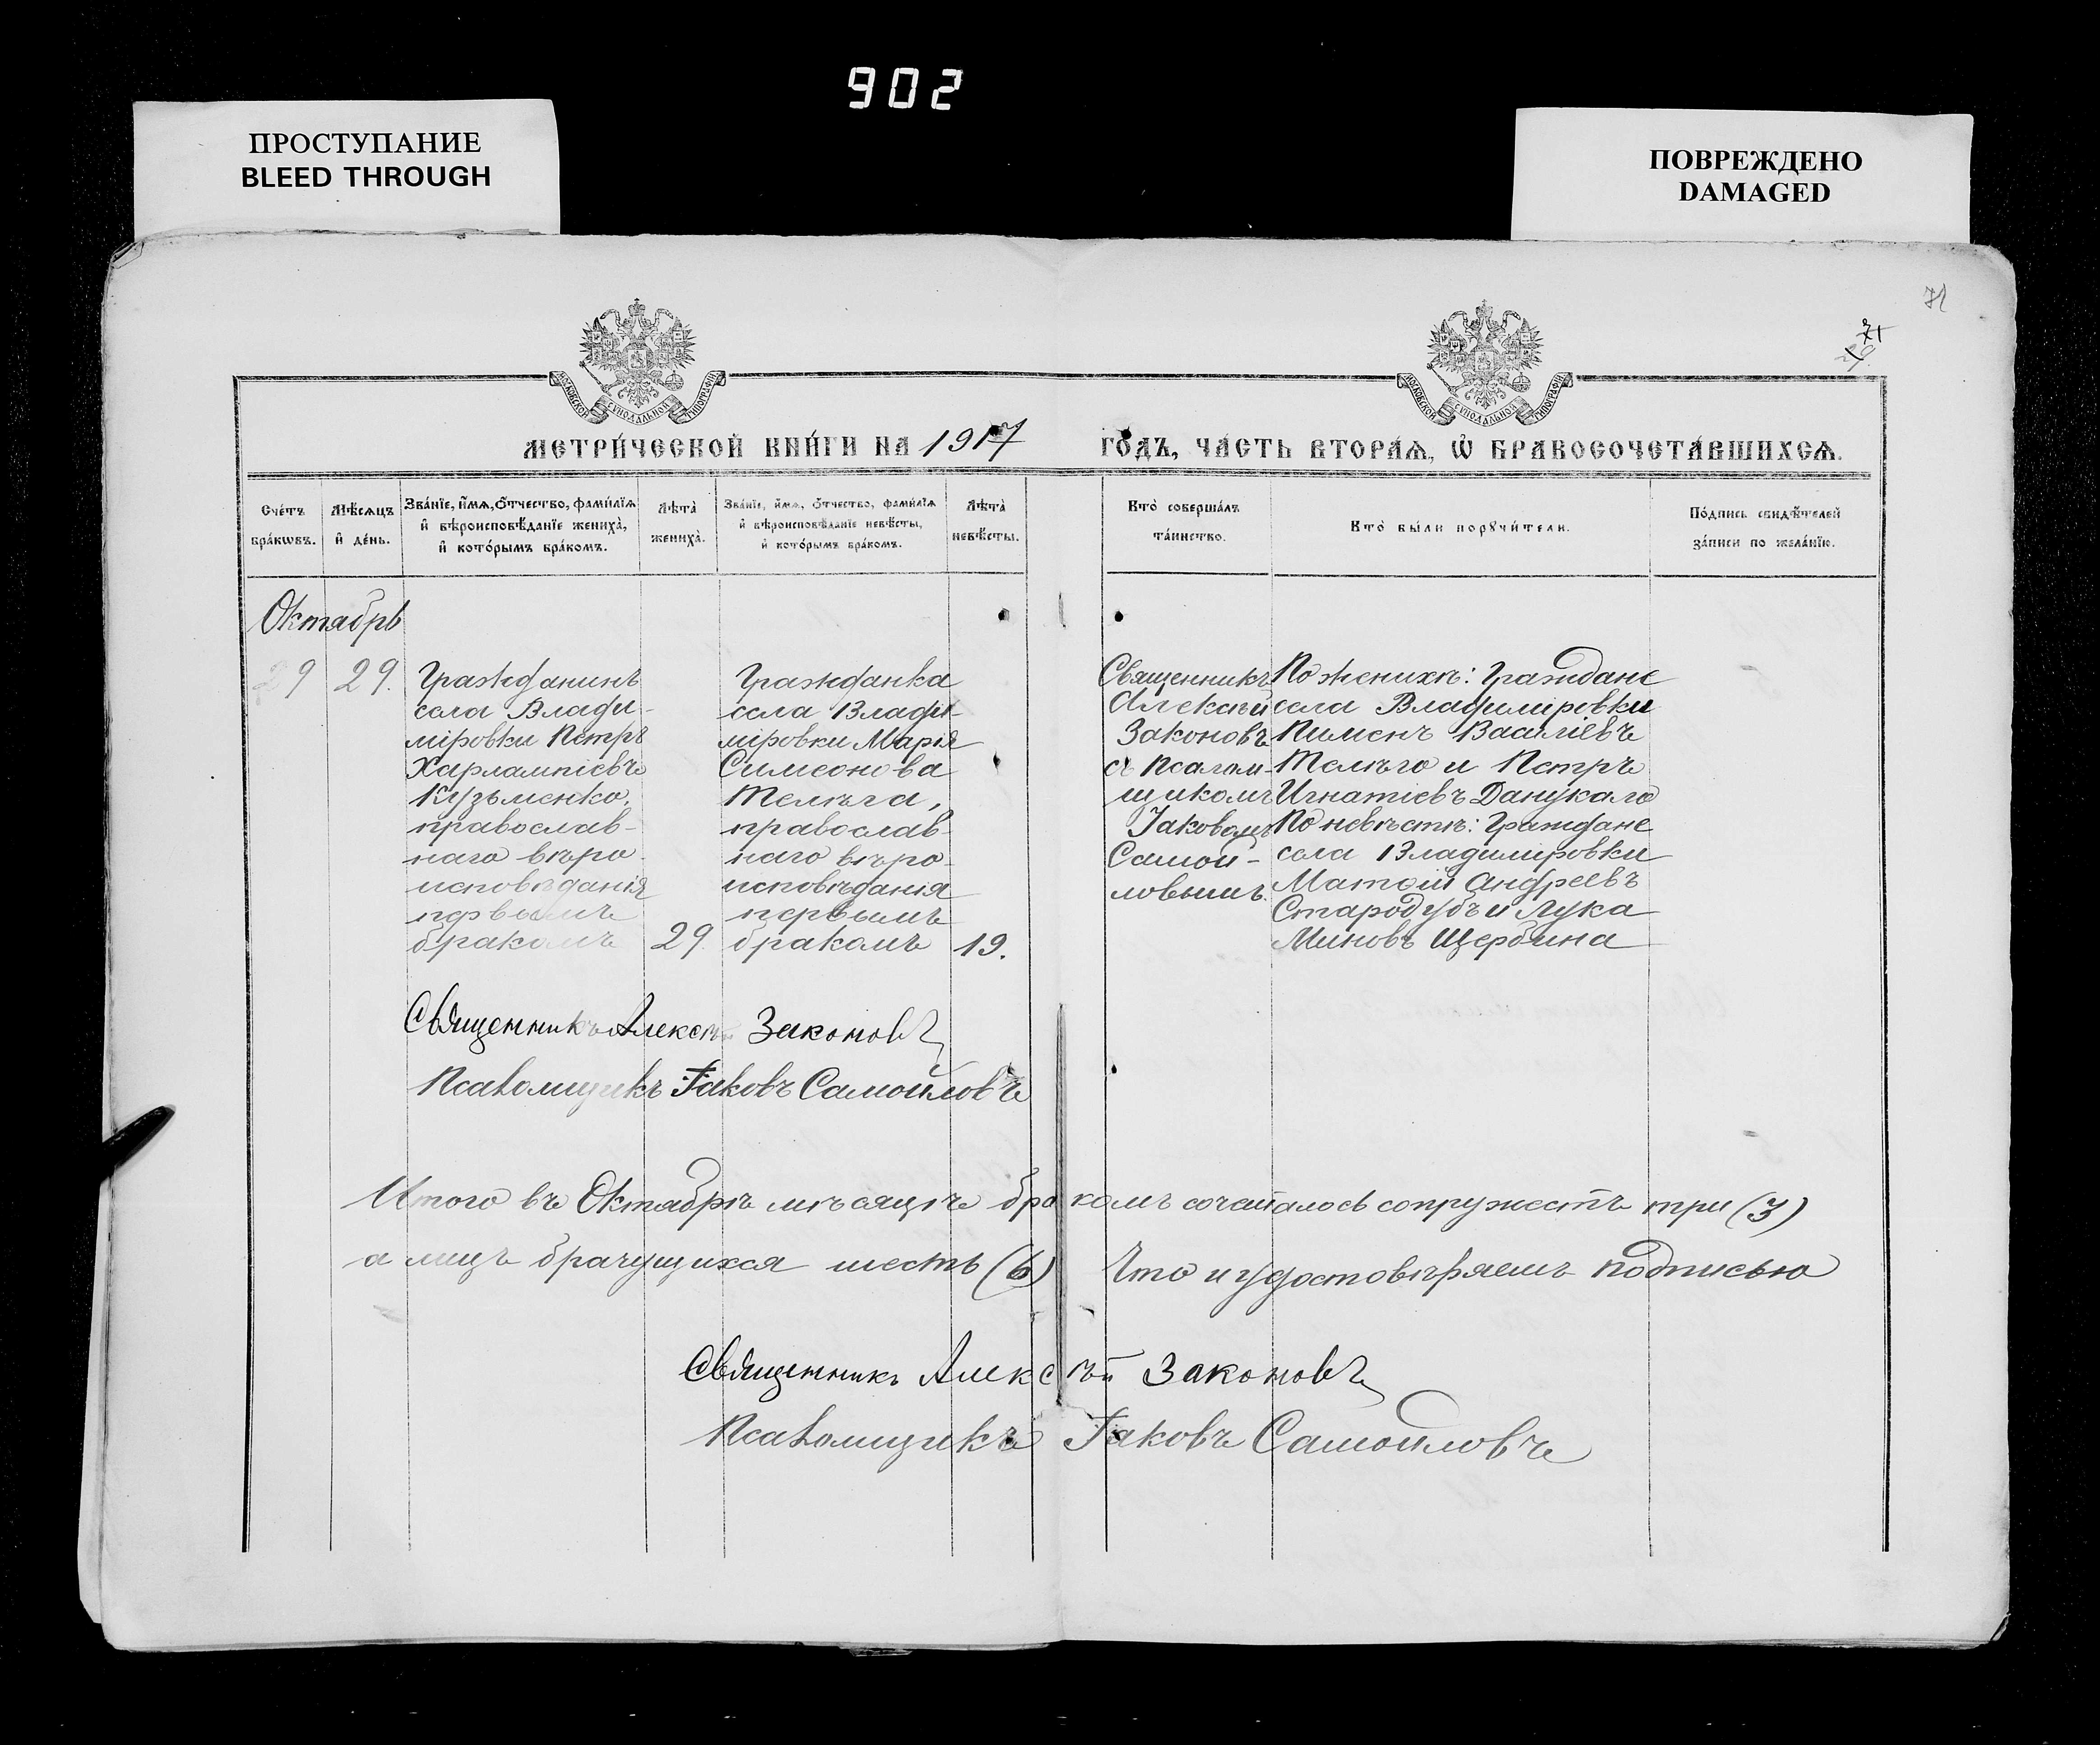 902
ПРОСТУПАНИЕ
BLEED THROUGH
ПОВРЕЖДЕНО
DAMAGED
71
МОСКОВСКОЙ СУНОДАЛЬНОЙ ТИПОГРАФІИ
МОСКОВСКОЙ СУНОДАЛЬНОЙ ТИПОГРАФІИ
МЕТРИ́ЧЕСКОЙ КНИ́ГИ НА 1917 ГО́ДЪ, ЧА́СТЬ ВТОРА́Я, Ѿ БРАКОСОЧЕТА́ВШИХСЯ.
Сче́тъ
бра́кѡвъ.
Мѣ́сяцъ
и де́нь.
Зва́нїе, и́мя, ѻ́тчество, фами́лїя
и вѣроисповѣ́данїе жениха̀,
и кото́рымъ бра́комъ.
Лѣта̀
жениха̀.
Зва́нїе, и́мя, ѻ́тчество, фами́лїя
и вѣроисповѣ́данїе невѣ́сты,
и кото́рымъ бра́комъ.
Лѣта̀
невѣ́сты.
Кто̀ соверша́лъ
та́инство.
Кто̀ бы́ли порꙋчи́тели.
По́дпись свидѣ́телей
за́писи по жела́нїю.
Октябрь
29
29.
Гражданинъ
села Влади-
міровки Петръ
Харлампіевъ
Кузьменко,
православ-
наго вѣро-
исповѣданія
первымъ
бракомъ
29.
Гражданка
села Влади-
міровки Марія
Симеонова
Телѣга,
православ-
наго вѣро-
исповѣданія
первымъ
бракомъ
19.
Священникъ
Алексѣй
Законовъ
съ псалом-
щикомъ
Іаковомъ
Самой-
ловымъ.
По женихѣ: Граждане
села Владиміровки
Пименъ Василіевъ
Телѣго и Петръ
Игнатіевъ Данукало
По невѣстѣ: Граждане
села Владиміровки
Матѳій Андреевъ
Стародубъ и Лука
Миновъ Щербина
Священникъ Алексѣй Законовъ
Псаломщикъ Іаковъ Самойловъ
Итого въ Октябрѣ мѣсяцѣ бракомъ сочеталось супружествъ три (3)
а лицъ брачущихся шесть (6) Что и удостовѣряемъ подписью
Священникъ Алексѣй Законовъ
Псаломщикъ Іаковъ Самойловъ